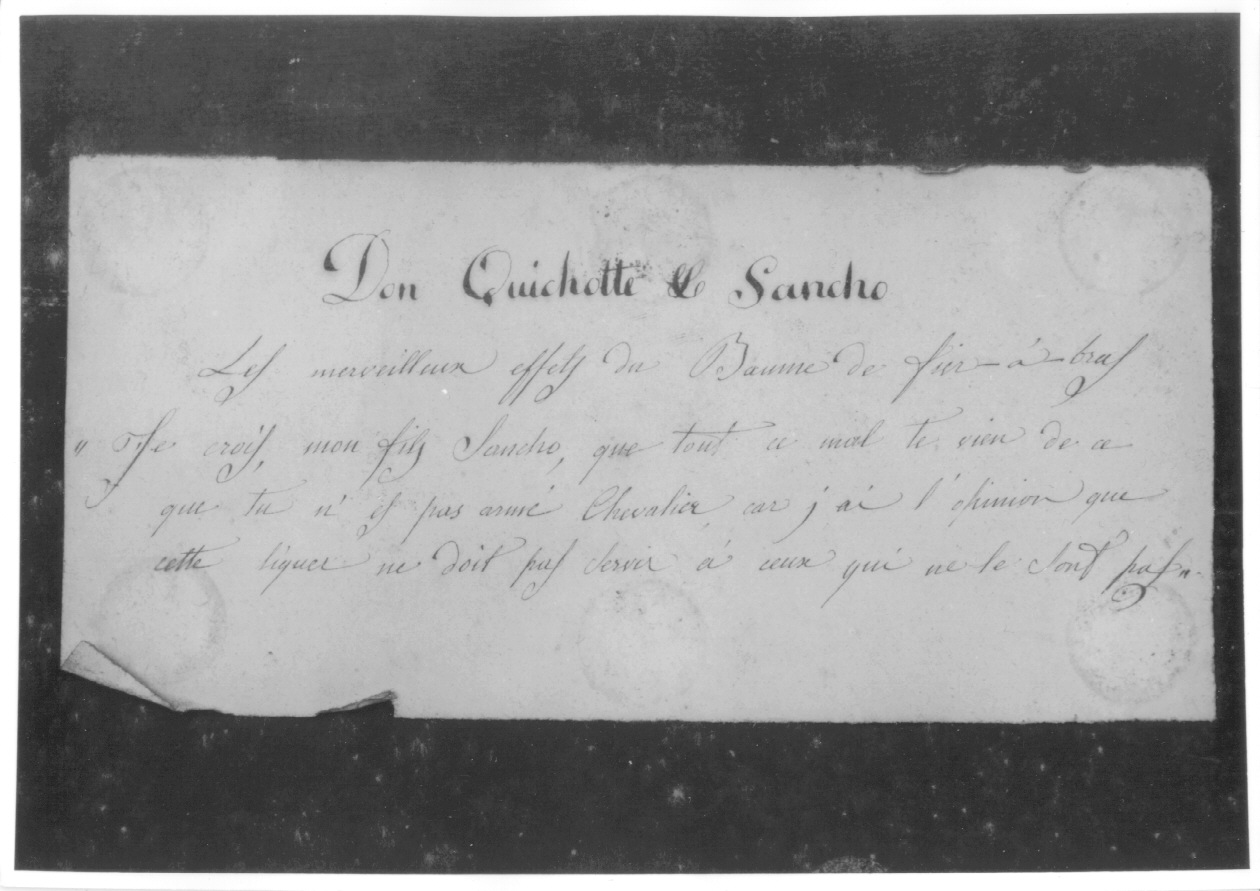 Don Quichotte & Sancho
Les merveilleux effets du Baume de fier-à-bras
" Je crois, mon fils Sancho, que tout ce mal te vien de ce
que tu n'es pas armé Chevalier, car j'ai l'opinion que
cette liquer ne doit pas servir à ceux qui ne le sont pas ".